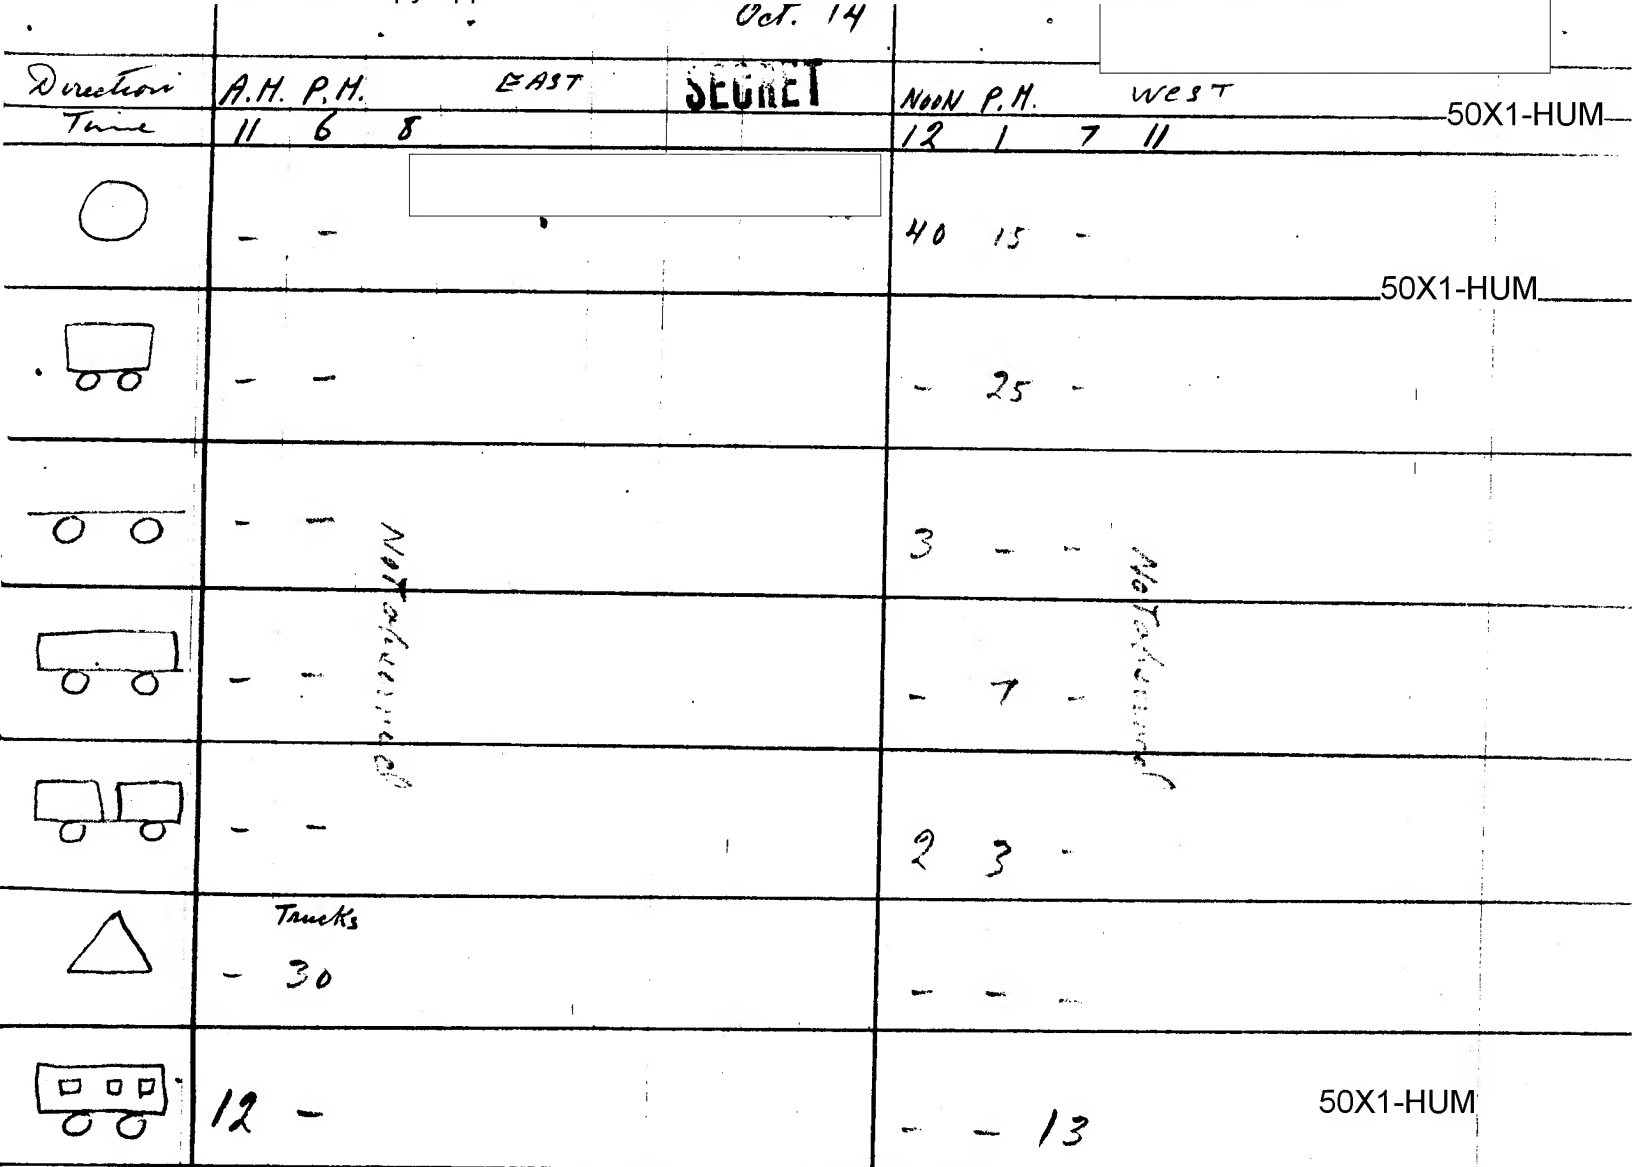 Oct. 14
Direction A.M. P.M. EAST SECRET NOON P.M. WEST
50X1-HUM
Time 11 6 8 12 1 7 11
- - 40 15 -
50X1-HUM
- - - 25 -
- - 3 - -
Not observed Not observed
- - - 7 -
- - 2 3 -
Trucks
- 30 - - -
12 - - - 13
50X1-HUM